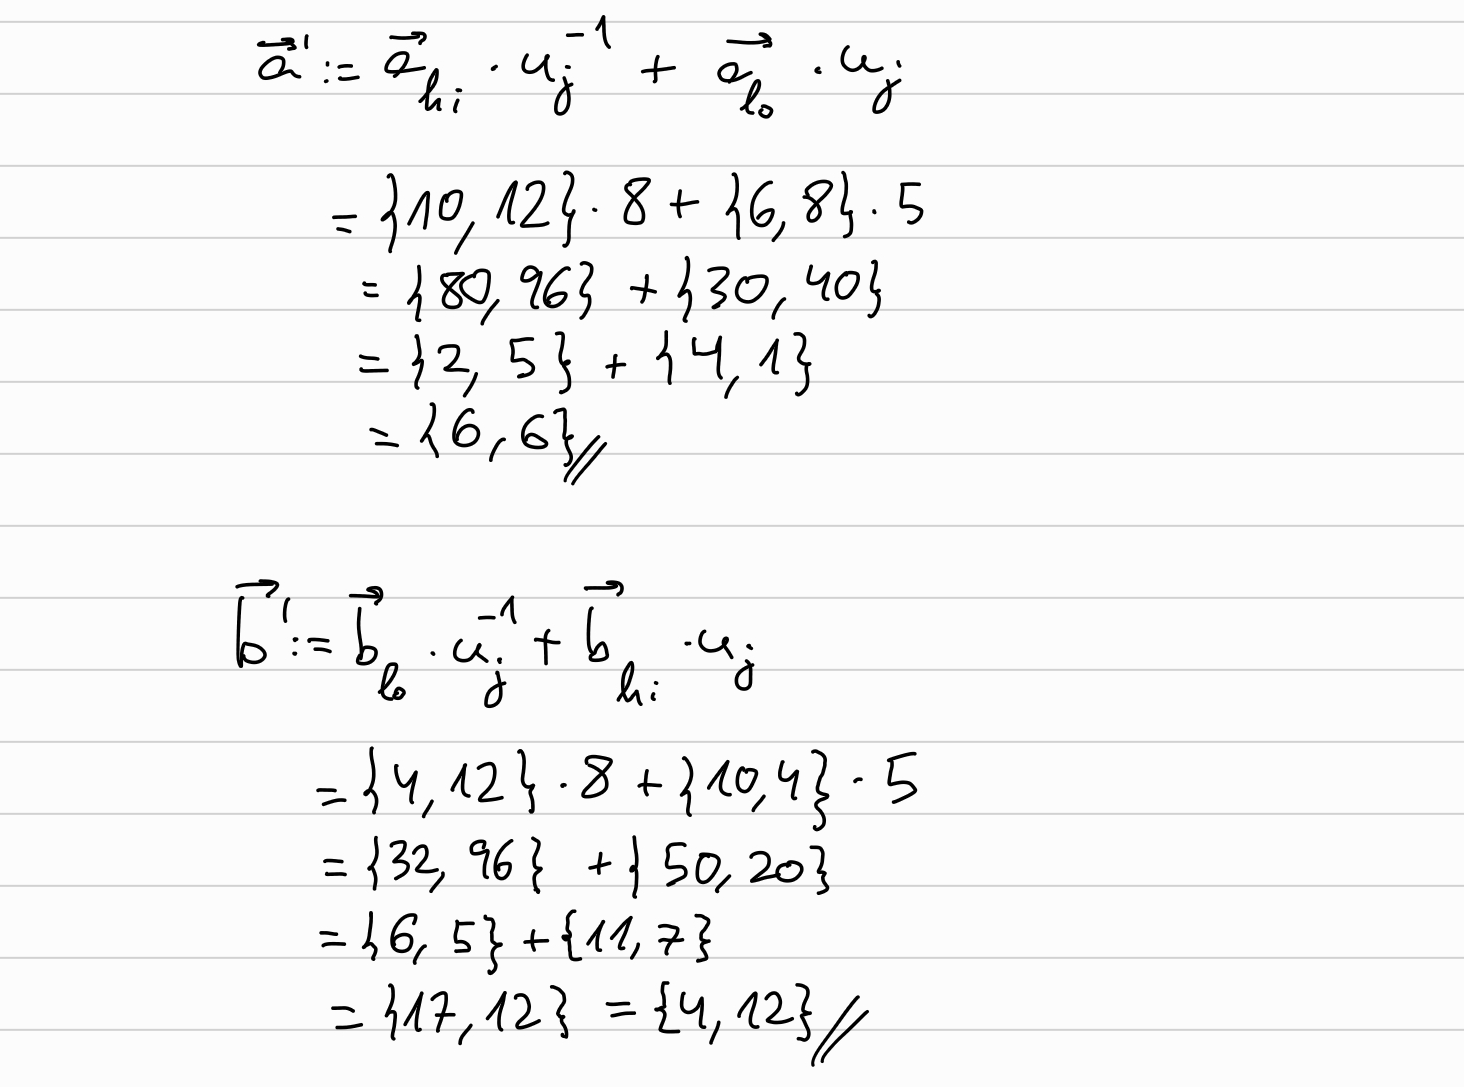 a⃗' := a⃗_hi · u_j^-1 + a⃗_lo · u_j
= {10, 12} · 8 + {6, 8} · 5
= {80, 96} + {30, 40}
= {2, 5} + {4, 1}
= {6, 6}//
b⃗' := b⃗_lo · u_j^-1 + b⃗_hi · u_j
= {4, 12} · 8 + {10, 4} · 5
= {32, 96} + {50, 20}
= {6, 5} + {11, 7}
= {17, 12} = {4, 12}//